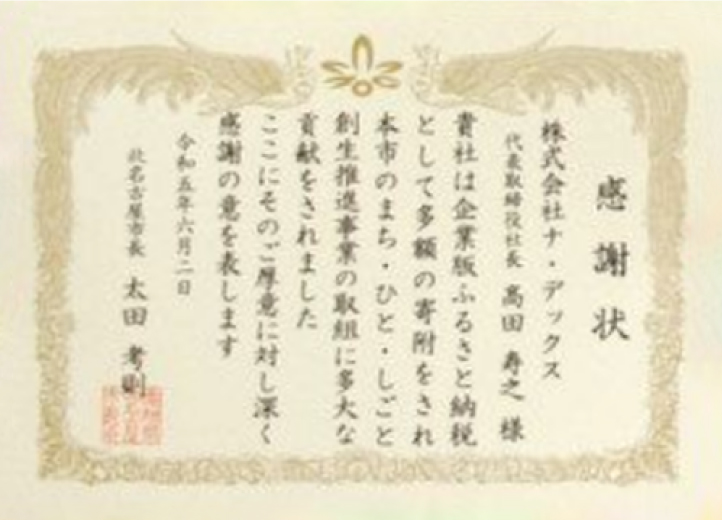 感謝状
株式会社ナ・デックス
代表取締役社長 高田 寿之 様
貴社は企業版ふるさと納税
として多額の寄附をされ
本市のまち・ひと・しごと
創生推進事業の取組に多大な
貢献をされました
ここにそのご厚意に対し深く
感謝の意を表します
令和五年六月二日
北名古屋市長 太田 考則